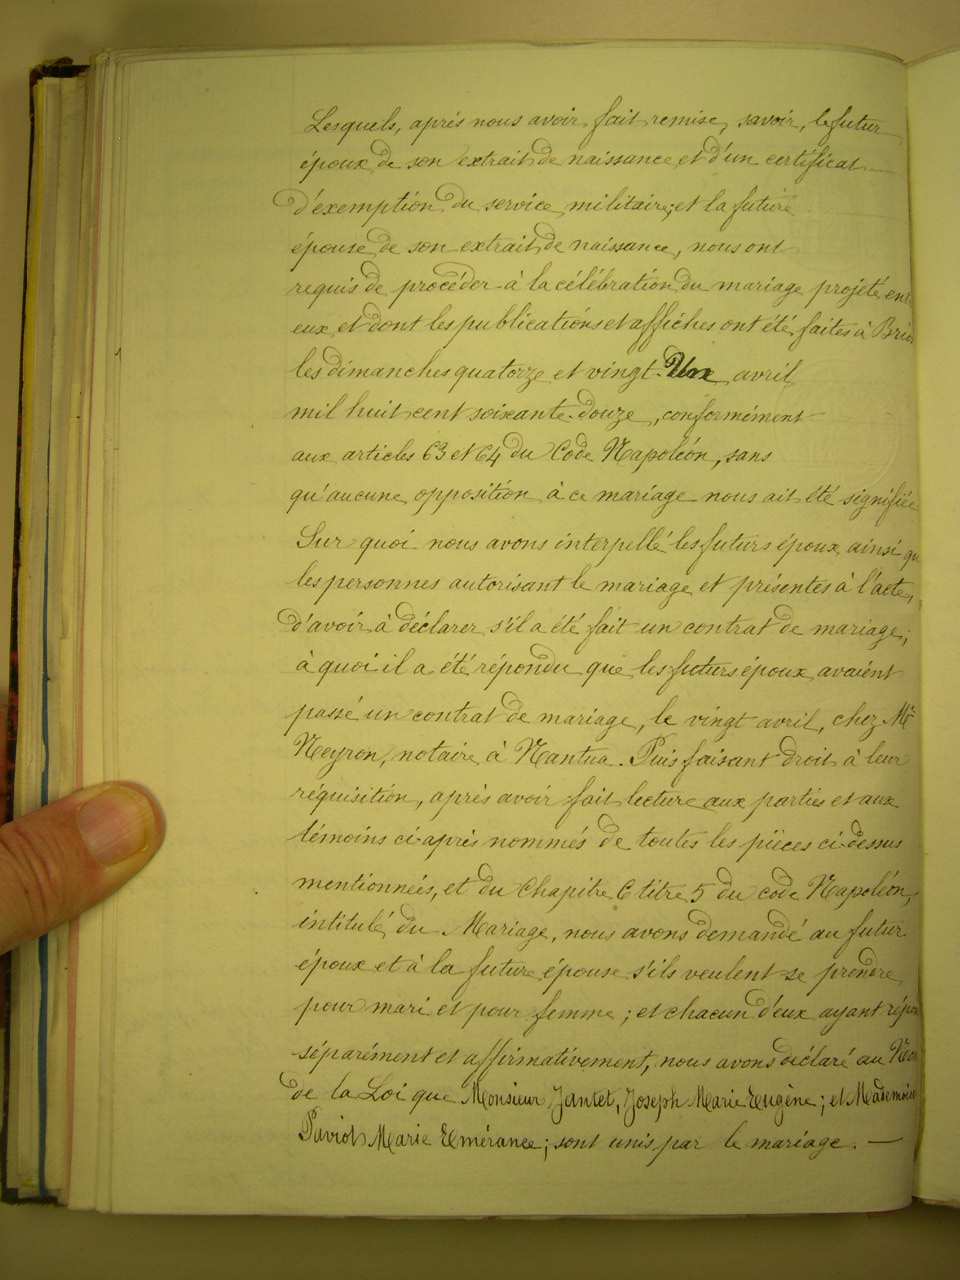 Lesquels, après nous avoir fait remise, savoir, le futur
époux de son extrait de naissance et d'un certificat
d'exemption du service militaire, et la future
épouse de son extrait de naissance, nous ont
requis de procéder à la célébration du mariage projeté en
eux et dont les publications et affiches ont été faites à
les dimanches quatorze et vingt-Un avril
mil huit cent soixante-douze, conformément
aux articles 63 et 64 du Code Napoléon, sans
qu'aucune opposition à ce mariage nous ait été signifiée
Sur quoi nous avons interpellé les futurs époux ainsi qu
les personnes autorisant le mariage et présentes à l'acte,
d'avoir à déclarer s'il a été fait un contrat de mariage;
à quoi il a été répondu que les futurs époux avaient
passé un contrat de mariage, le vingt avril, chez Me
Neyron, notaire à Nantua. Puis faisant droit à leur
réquisition, après avoir fait lecture aux parties et aux
témoins ci-après nommés de toutes les pièces ci-dessus
mentionnées, et du Chapitre 6 titre 5 du code Napoléon,
intitulé du Mariage, nous avons demandé au futur
époux et à la future épouse s'ils veulent se prendre
pour mari et pour femme; et chacun d'eux ayant répon
séparément et affirmativement, nous avons déclaré au Nom
de la Loi que Monsieur Jantet, Joseph Marie Eugène; et Mademois
Paviot Marie Emérance; sont unis par le mariage. —